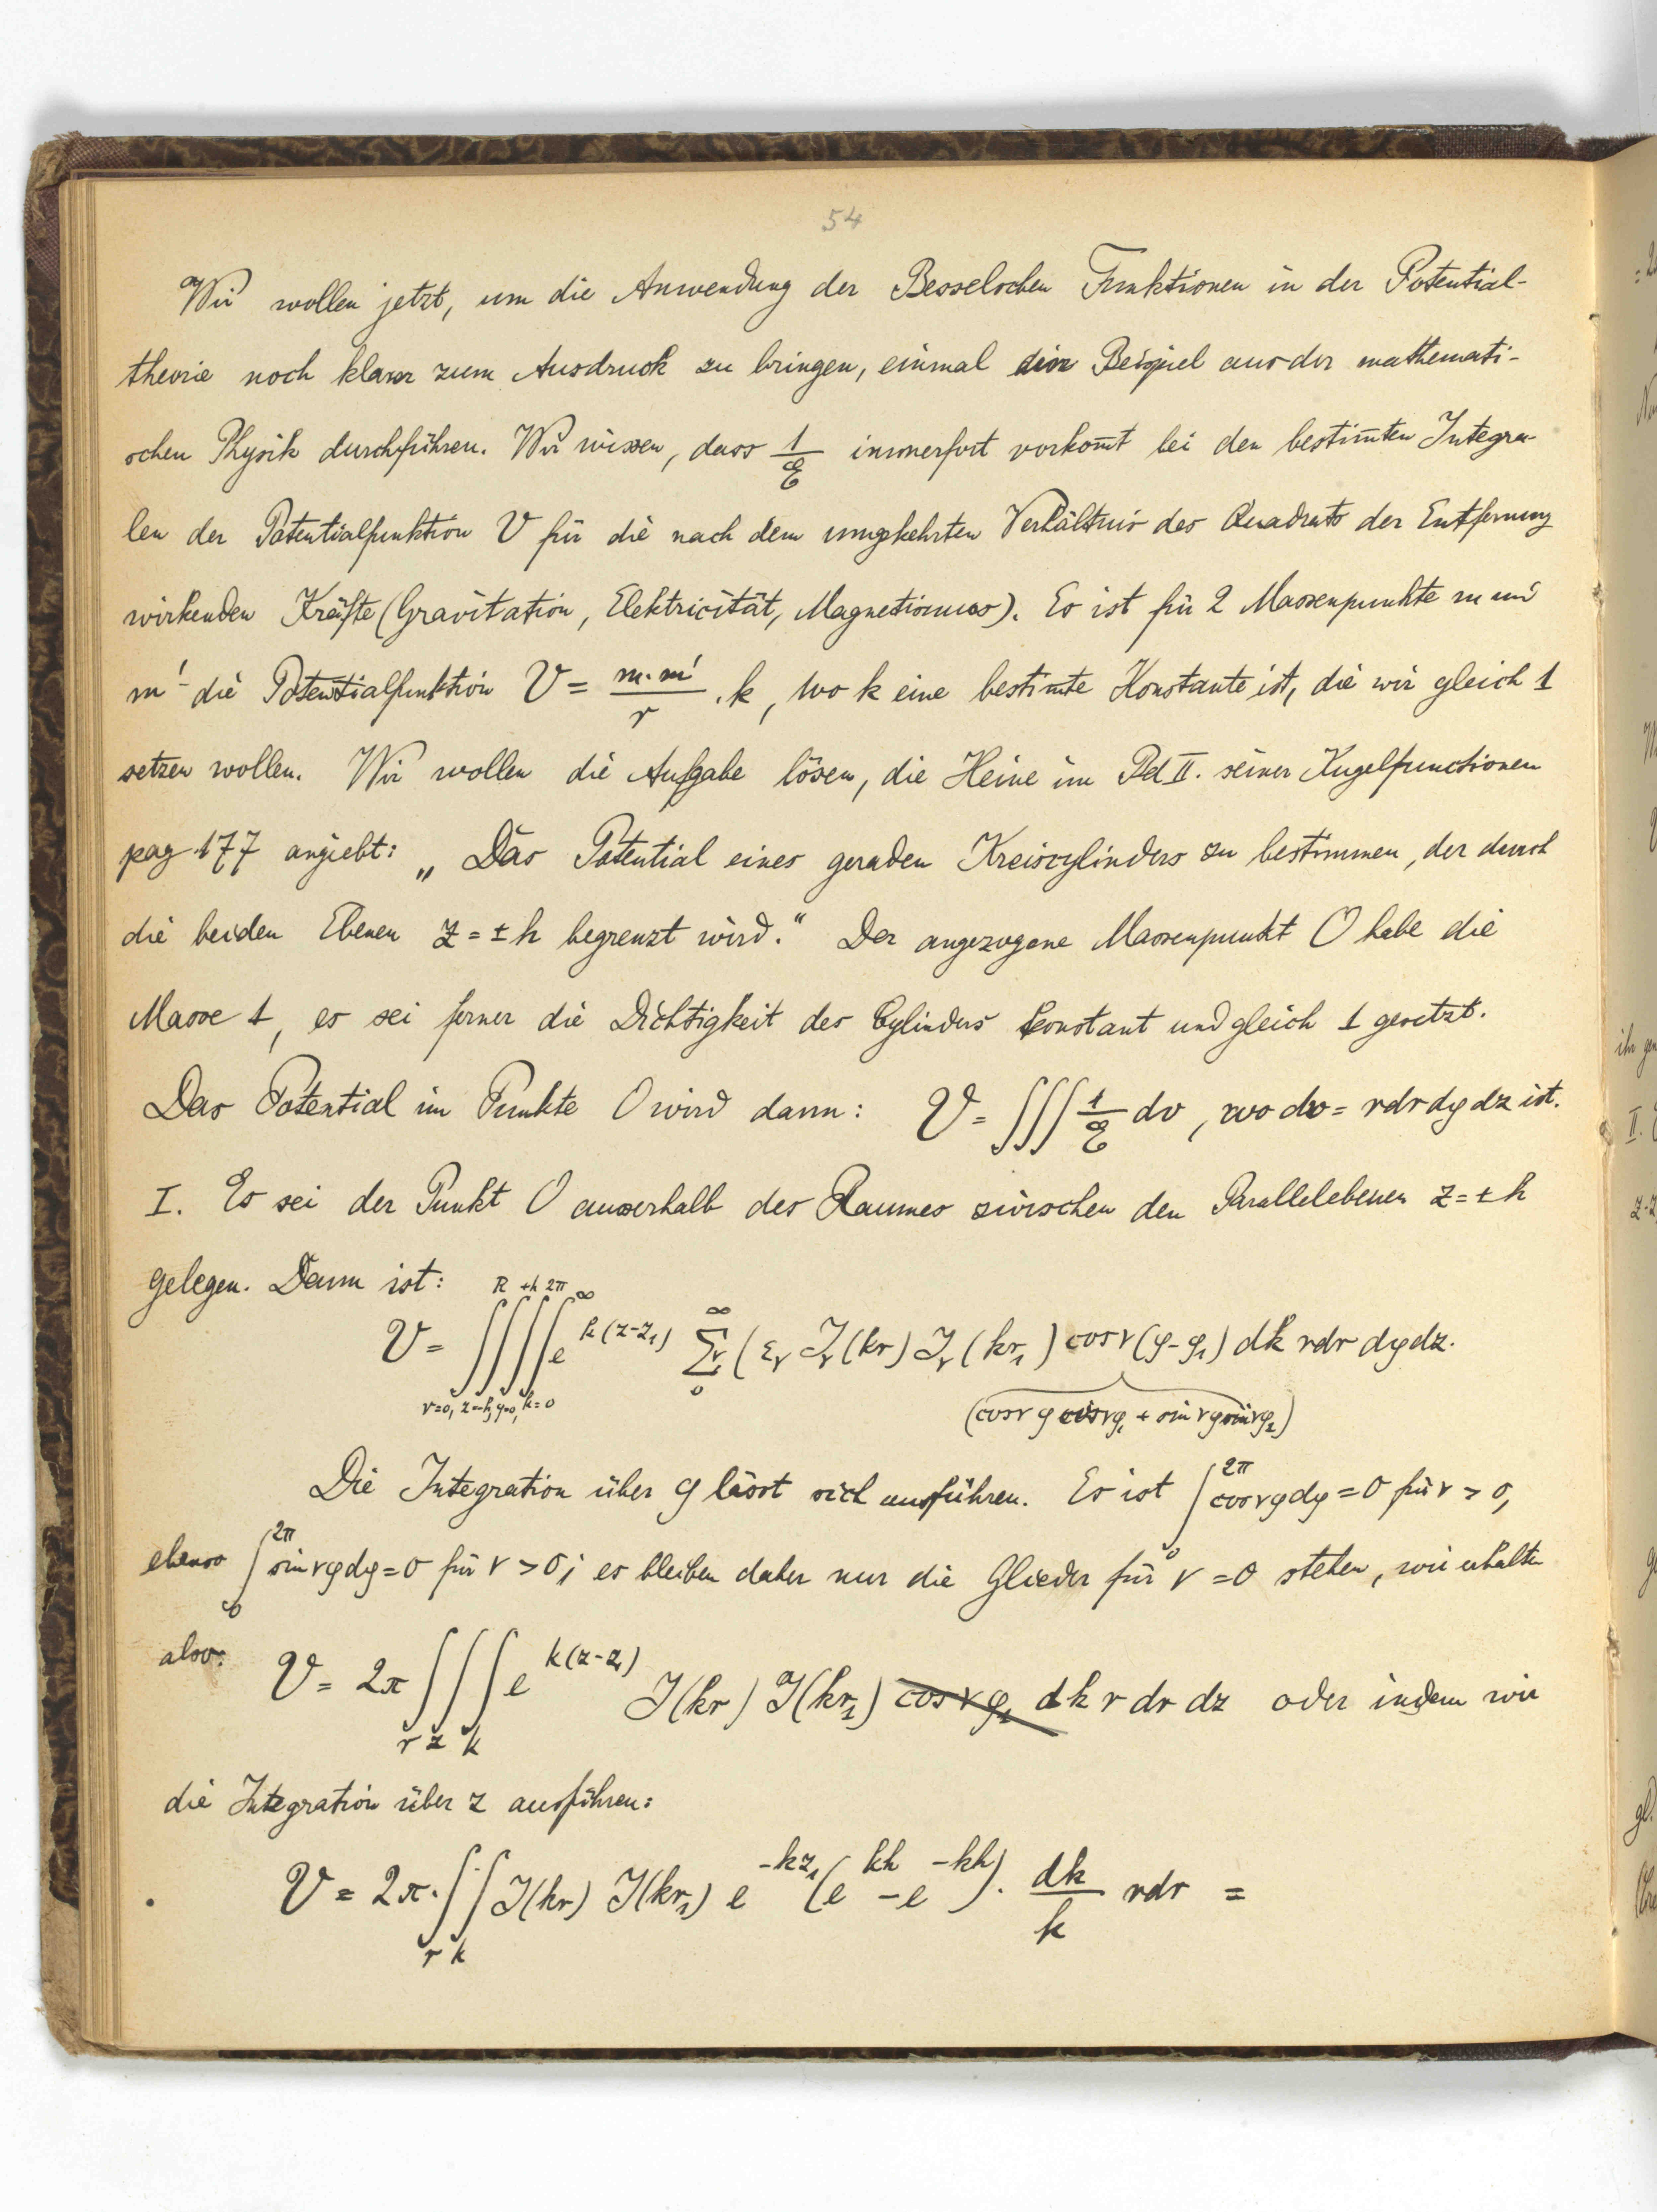 54
Wir wollen jetzt, um die Anwendung der Besselschen Funktionen in der Potential-
theorie noch klarer zum Ausdruck zu bringen, einmal ein Beispiel aus der mathemati-
schen Physik durchführen. Wir wissen, dass 1/E immerfort vorkom̄t bei den bestim̄ten Integra-
len der Potentialfunktion V für die nach dem umgekehrten Verhältnis des Quadrats der Entfernung
wirkenden Kräfte (Gravitation, Elektricität, Magnetismus). Es ist für 2 Massenpunkte m und
m' die Potentialfunktion V = m·m'/r · k, wo k eine bestim̄te Konstante ist, die wir gleich 1
setzen wollen. Wir wollen die Aufgabe lösen, die Heine im Bd II. seiner Kugelfunctionen
pag 177 angiebt: „Das Potential eines geraden Kreiscylinders zu bestimmen, der durch
die beiden Ebenen z = ± h begrenzt wird.“ Der angezogene Massenpunkt O habe die
Masse 1, es sei ferner die Dichtigkeit des Cylinders konstant und gleich 1 gesetzt.
Das Potential im Punkte O wird dann: V = ∫∫∫ 1/E dv, wo dv = r dr dφ dz ist.
I. Es sei der Punkt O ausserhalb des Raumes zwischen den Parallelebenen z = ± h
gelegen. Dann ist: R +h 2π ∞
V = ∫∫∫∫ e^{k(z-z₁)} ∑_{0}^{∞}ν (ε_ν J_ν(kr) J_ν(kr₁) cos ν(φ-φ₁) dk r dr dφ dz.
r=0, z=-h, φ=0, k=0
(cos νφ cos νφ₁ + sin νφ sin νφ₁)
Die Integration über φ lässt sich ausführen. Es ist ∫_0^{2π} cos νφ dφ = 0 für ν > 0,
ebenso ∫_0^{2π} sin νφ dφ = 0 für ν > 0; es bleiben daher nur die Glieder für ν = 0 stehen, wir erhalten
also: V = 2π ∫∫∫ e^{k(z-z₁)} J(kr) J(kr₁) cos νφ₁ dk r dr dz oder indem wir
r z k
die Integration über z ausführen:
V = 2π · ∫∫ J(kr) J(kr₁) e^{-kz₁} (e^{kh} - e^{-kh}) · dk/k r dr =
r k